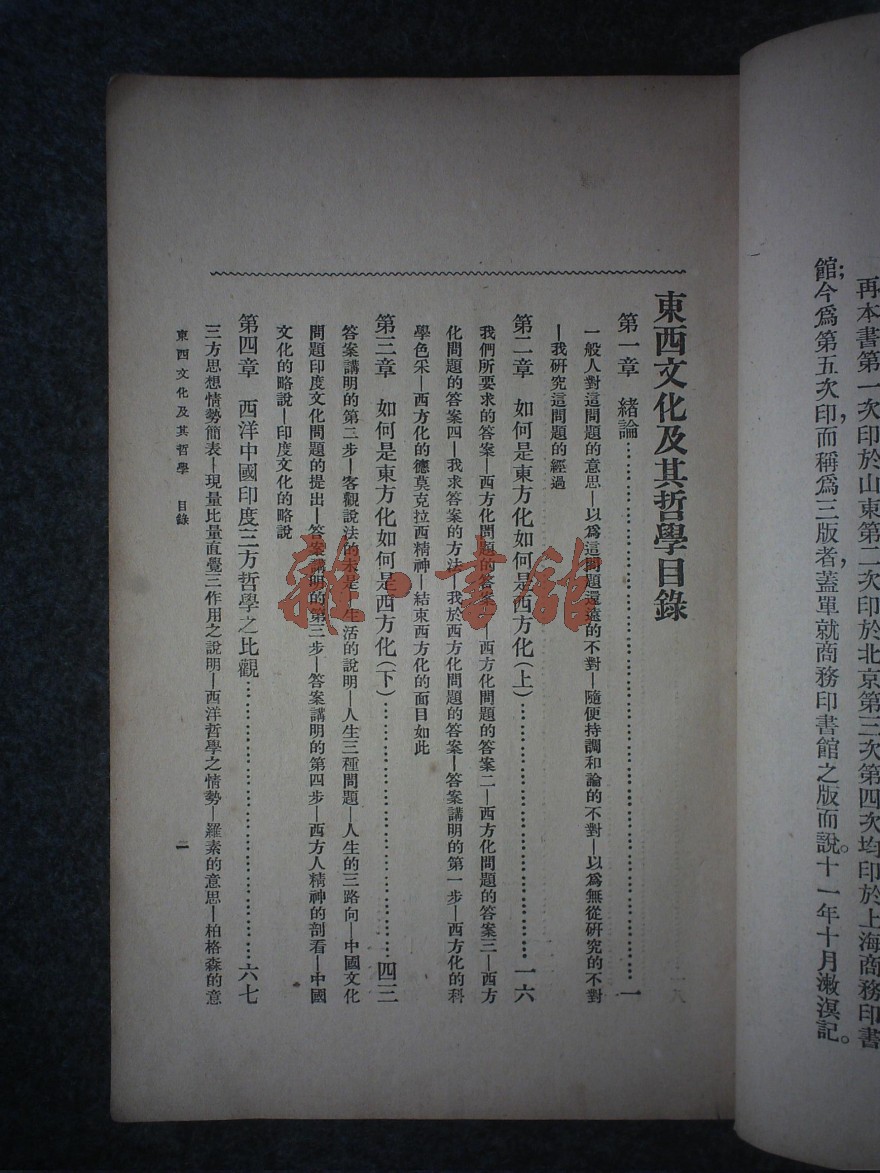 再本書第一次印於山東第二次印於北京第三次第四次均印於上海商務印書
館;今爲第五次印,而稱爲三版者,蓋單就商務印書館之版而說。十一年十月漱溟記。
東西文化及其哲學目錄
第一章 緒論……一
一般人對這問題的意思—以爲這問題還遠的不對—隨便持調和論的不對—以爲無從研究的不對
—我研究這問題的經過
第二章 如何是東方化如何是西方化(上)……一六
我們所要求的答案—西方化問題的答案一—西方化問題的答案二—西方化問題的答案三—西方
化問題的答案四—我求答案的方法—我於西方化問題的答案—答案講明的第一步—西方化的科
學色采—西方化的德莫克拉西精神—結東西方化的面目如此
第三章 如何是東方化如何是西方化(下)……四三
答案講明的第二步—客觀說法的未是—生活的說明—人生三種問題—人生的三路向—中國文化
問題印度文化問題的提出—答案講明的第三步—答案講明的第四步—西方人精神的剖看—中國
文化的略說—印度文化的略說
第四章 西洋中國印度三方哲學之比觀……六七
三方思想情勢簡表—現量比量直覺三作用之說明—西洋哲學之情勢—羅素的意思—柏格森的意
東西文化及其哲學 目錄 一
雜·書館